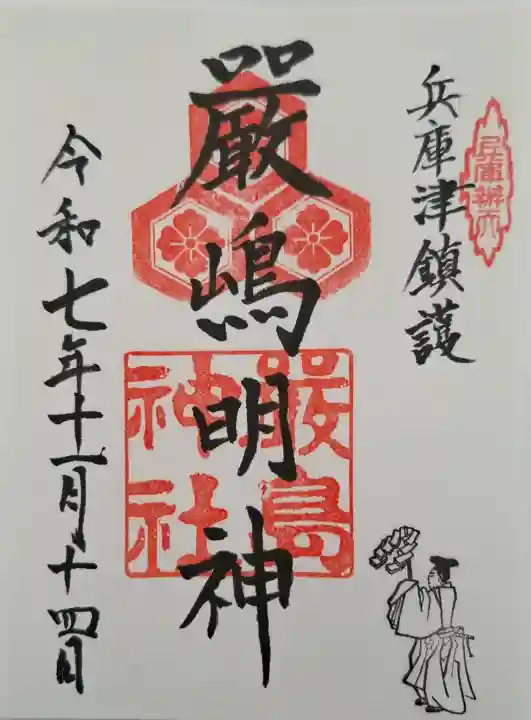 兵庫辨天
兵庫津鎮護
嚴嶋明神
嚴島
神社
令和七年十一月十四日